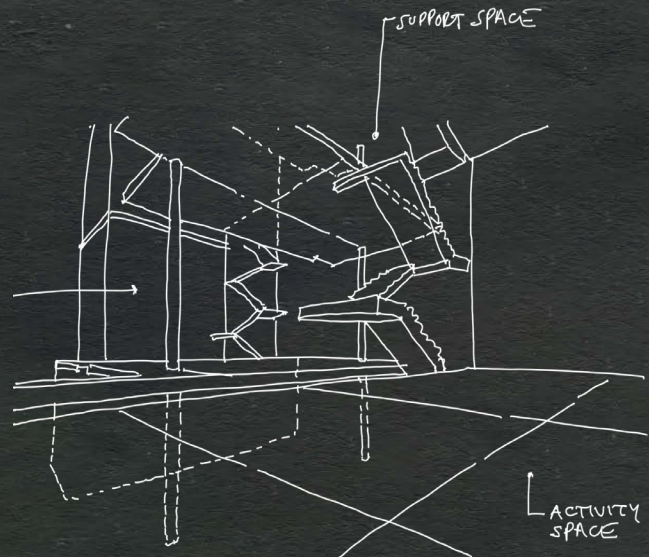 SUPPORT SPACE
ACTIVITY
SPACE